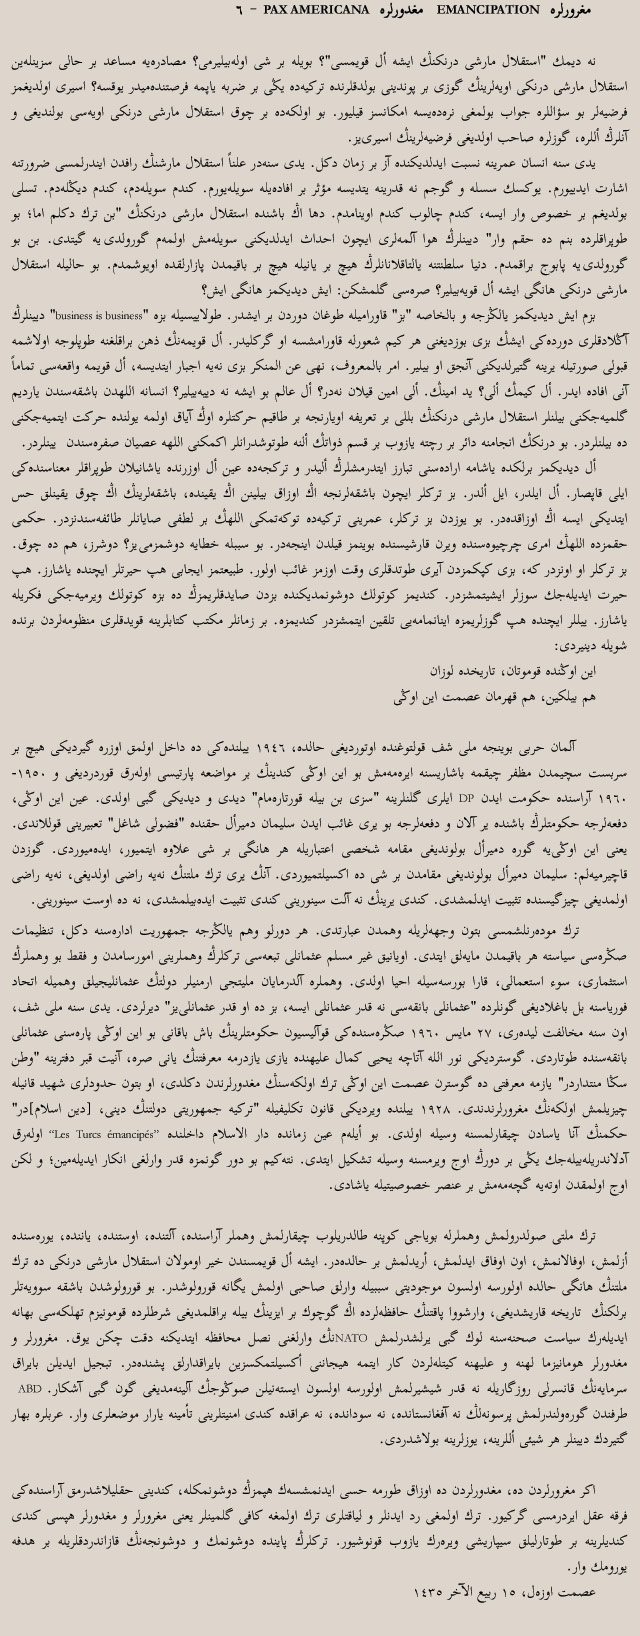 مغرورلره EMANCIPATION مغدورلره PAX AMERICANA – ٦
نه دیمك "استقلال مارشی درنكنڭ ایشه أل قویمسی"؟ بویله بر شی اوله‌بیلیرمی؟ مصادره‌یه مساعد بر حالی سزینله‌ین
استقلال مارشی درنكی اویه‌لرینڭ گوزی بر پوندینی بولدقلرنده تركیه‌ده یڭی بر ضربه یاپمه فرصتنده‌میدر یوقسه؟ اسیری اولدیغمز
فرضیه‌لر بو سؤاللره جواب بولمغی نره‌ده‌یسه امكانسز قیلیور. بو اولكه‌ده بر چوق استقلال مارشی درنكی اویه‌سی بولندیغی و
آنلرڭ أللره، گوزلره صاحب اولدیغی فرضیه‌لرینڭ اسیری‌یز.
یدی سنه انسان عمرینه نسبت ایدلدیكنده آز بر زمان دكل. یدی سنه‌در علناً استقلال مارشنڭ رافدن ایندرلمسی ضرورتنه
اشارت ایدییورم. یوكسك سسله و گوجم نه قدرینه یتدیسه مؤثر بر افاده‌یله سویله‌یورم. كندم سویله‌دم، كندم دیڭله‌دم. تسلی
بولدیغم بر خصوص وار ایسه، كندم چالوب كندم اوینامدم. دها اڭ باشنده استقلال مارشی درنكنڭ "بن ترك دكلم اما؛ بو
طوپراقلرده بنم ده حقم وار" دیینلرڭ هوا آلمه‌لری ایچون احداث ایدلدیكنی سویله‌مش اولمه‌م گورولدی‌یه گیتدی. بن بو
گورولدی‌یه پابوج براقمدم. دنیا سلطنتنه یالتاقلانانلرڭ هیچ بر یانیله هیچ بر باقیمدن پازارلقده اویوشمدم. بو حالیله استقلال
مارشی درنكی هانگی ایشه أل قویه‌بیلیر؟ صره‌سی گلمشكن: ایش دیدیكمز هانگی ایش؟
بزم ایش دیدیكمز یالڭزجه و بالخاصه "بز" قاورامیله طوغان دوردن بر ایشدر. طولاییسیله بزه "business is business" دیینلرڭ
آڭلادقلری دورده‌كی ایشڭ بزی بوزدیغنی هر كیم شعورله قاورامشسه او گركلیدر. أل قویمه‌نڭ ذهن براقلغنه طوپلوجه اولاشمه
قبولی صورتیله یرینه گتیرلدیكنی آنجق او بیلیر. امر بالمعروف، نهی عن المنكر بزی نه‌یه اجبار ایتدیسه، أل قویمه واقعه‌سی تماماً
آنی افاده ایدر. أل كیمڭ ألی؟ ید امینڭ. ألی امین قیلان نه‌در؟ أل عالم بو ایشه نه دییه‌بیلیر؟ انسانه اللهدن باشقه‌سندن یاردیم
گلمیه‌جكنی بیلنلر استقلال مارشی درنكنڭ بللی بر تعریفه اویارنجه بر طاقیم حركتلره اوڭ آیاق اولمه یولنده حركت ایتمیه‌جكنی
ده بیلنلردر. بو درنكڭ انجامنه دائر بر رچته یازوب بر قسم ذواتڭ ألنه طوتوشدرانلر اكمكنی اللهه عصیان صفره‌سندن یینلردر.
أل دیدیكمز برلكده یاشامه اراده‌سنی تبارز ایتدرمشلرڭ ألیدر و تركجه‌ده عین أل اوزرنده یاشانیلان طوپراقلر معناسنده‌كی
ایلی قاپصار. أل ایلدر، ایل ألدر. بز تركلر ایچون باشقه‌لرنجه اڭ اوزاق بیلینن اڭ یقینده، باشقه‌لرینڭ اڭ چوق یقینلق حس
ایتدیكی ایسه اڭ اوزاقده‌در. بو یوزدن بز تركلر، عمرینی تركیه‌ده توكه‌تمكی اللهڭ بر لطفی صایانلر طائفه‌سندنزدر. حكمی
حقمزده اللهڭ امری چرچیوه‌سنده ویرن قارشیسنده بوینمز قیلدن اینجه‌در. بو سببله خطایه دوشمزمی‌یز؟ دوشرز، هم ده چوق.
بز تركلر او اونزدر كه، بزی كپكمزدن آیری طوتدقلری وقت اوزمز غائب اولور. طبیعتمز ایجابی هپ حیرتلر ایچنده یاشارز. هپ
حیرت ایدیله‌جك سوزلر ایشیتمشزدر. كندیمز كوتولك دوشونمدیكنده بزدن صایدقلریمزڭ ده بزه كوتولك ویرمیه‌جكی فكریله
یاشارز. ییللر ایچنده هپ گوزلریمزه اینانمامه‌یی تلقین ایتمشزدر كندیمزه. بر زمانلر مكتب كتابلرینه قویدقلری منظومه‌لردن برنده
شویله دینیردی:
این اوڭنده قوموتان، تاریخده لوزان
هم بیلكین، هم قهرمان عصمت این اوڭی
آلمان حربی بوینجه ملی شف قولتوغنده اوتوردیغی حالده، ١٩٤٦ ییلنده‌كی ده داخل اولمق اوزره گیردیكی هیچ بر
سربست سچیمدن مظفر چیقمه باشاریسنه ایره‌مه‌مش بو این اوڭی كندینڭ بر مواضعه پارتیسی اوله‌رق قوردردیغی و ١٩٥٠-
١٩٦٠ آراسنده حكومت ایدن DP ایلری گلنلرینه "سزی بن بیله قورتاره‌مام" دیدی و دیدیكی گبی اولدی. عین این اوڭی،
دفعه‌لرجه حكومتلرڭ باشنده یر آلان و دفعه‌لرجه بو یری غائب ایدن سلیمان دمیرأل حقنده "فضولی شاغل" تعبیرینی قوللاندی.
یعنی این اوڭی‌یه گوره دمیرأل بولوندیغی مقامه شخصی اعتباریله هر هانگی بر شی علاوه ایتمیور، ایده‌میوردی. گوزدن
قاچیرمیه‌لم: سلیمان دمیرأل بولوندیغی مقامدن بر شی ده اكسیلتمیوردی. آنڭ یری ترك ملتنڭ نه‌یه راضی اولدیغی، نه‌یه راضی
اولمدیغی چیزگیسنده تثبیت ایدلمشدی. كندی یرینڭ نه آلت سینورینی كندی تثبیت ایده‌بیلمشدی، نه ده اوست سینورینی.
ترك مودەرنلشمسی بتون وجهه‌لریله وهمدن عبارتدی. هر دورلو وهم یالڭزجه جمهوریت اداره‌سنه دكل، تنظیمات
صڭره‌سی سیاسته هر باقیمدن مایه‌لق ایتدی. اویانیق غیر مسلم عثمانلی تبعه‌سی تركلرڭ وهملرینی امورسامدن و فقط بو وهملرڭ
استثماری، سوء استعمالی، قارا بورسه‌سیله احیا اولدی. وهملره آلدرمایان ملیتجی ارمنیلر دولتڭ عثمانلیجیلق وهمیله اتحاد
فوریاسنه بل باغلادیغی گونلرده "عثمانلی بانقه‌سی نه قدر عثمانلی ایسه، بز ده او قدر عثمانلی‌یز" دیرلردی. یدی سنه ملی شف،
اون سنه مخالفت لیده‌ری، ٢٧ مایس ١٩٦٠ صڭره‌سنده‌كی قوآلیسیون حكومتلرینڭ باش باقانی بو این اوڭی پاره‌سنی عثمانلی
بانقه‌سنده طوتاردی. گوستردیكی نور الله آتاچه یحیی كمال علیهنده یازی یازدرمه معرفتنڭ یانی صره، آنیت قبر دفترینه "وطن
سڭا منتداردر" یازمه معرفتی ده گوسترن عصمت این اوڭی ترك اولكه‌سنڭ مغدورلرندن دكلدی، او بتون حدودلری شهید قانیله
چیزیلمش اولكه‌نڭ مغرورلرندندی. ١٩٢٨ ییلنده ویردیكی قانون تكلیفیله "تركیه جمهوریتی دولتنڭ دینی، [دین اسلام]در"
حكمنڭ آنا یاسادن چیقارلمسنه وسیله اولدی. بو أیله‌م عین زمانده دار الاسلام داخلنده “Les Turcs émancipés” اوله‌رق
آدلاندریله‌بیله‌جك یڭی بر دورڭ اوج ویرمسنه وسیله تشكیل ایتدی. نته‌كیم بو دور گونمزه قدر وارلغی انكار ایدیله‌مین؛ و لكن
اوج اولمقدن اوته‌یه گچه‌مه‌مش بر عنصر خصوصیتیله یاشادی.
ترك ملتی صولدرولمش وهملرله بویاجی كوپنه طالدریلوب چیقارلمش وهملر آراسنده، آلتنده، اوستنده، یاننده، یوره‌سنده
أزلمش، اوفالانمش، اون اوفاق ایدلمش، أریدلمش بر حالده‌در. ایشه أل قویمسندن خیر اومولان استقلال مارشی درنكی ده ترك
ملتنڭ هانگی حالده اولورسه اولسون موجودیتی سببیله وارلق صاحبی اولمش یگانه قورولوشدر. بو قورولوشدن باشقه سوویه‌تلر
برلكنڭ تاریخه قاریشدیغی، وارشووا پاقتنڭ حافظه‌لرده اڭ گوچوك بر ایزینڭ بیله براقلمدیغی شرطلرده قومونیزم تهلكه‌سی بهانه
ایدیله‌رك سیاست صحنه‌سنه لوك گبی یرلشدرلمش NATOنڭ وارلغنی نصل محافظه ایتدیكنه دقت چكن یوق. مغرورلر و
مغدورلر هومانیزما لهنه و علیهنه كیتله‌لردن كار ایتمه هیجاننی أكسیلتمكسزین بایراقدارلق پشنده‌در. تبجیل ایدیلن بایراق
سرمایه‌نڭ قانسرلی روزگاریله نه قدر شیشیرلمش اولورسه اولسون ایسته‌نیلن صوڭوجڭ آلینه‌مدیغی گون گبی آشكار. ABD
طرفندن گوره‌ولندرلمش پرسونه‌لڭ نه آفغانستانده، نه سودانده، نه عراقده كندی امنیتلرینی تأمینه یارار موضعلری وار. عربلره بهار
گتیردك دیینلر هر شیئی أللرینه، یوزلرینه بولاشدردی.
اكر مغرورلردن ده، مغدورلردن ده اوزاق طورمه حسی ایدنمشسه‌ك هپمزڭ دوشونمكله، كندینی حقلیلاشدرمق آراسنده‌كی
فرقه عقل ایردرمسی گركیور. ترك اولمغی رد ایدنلر و لیاقتلری ترك اولمغه كافی گلمینلر یعنی مغرورلر و مغدورلر هپسی كندی
كندیلرینه بر طوتارلیلق سیپاریشی ویره‌رك یازوب قونوشیور. تركلرڭ پاینده دوشونمك و دوشونجه‌نڭ قازاندردقلریله بر هدفه
یورومك وار.
عصمت اوزه‌ل، ١٥ ربیع الآخر ١٤٣٥